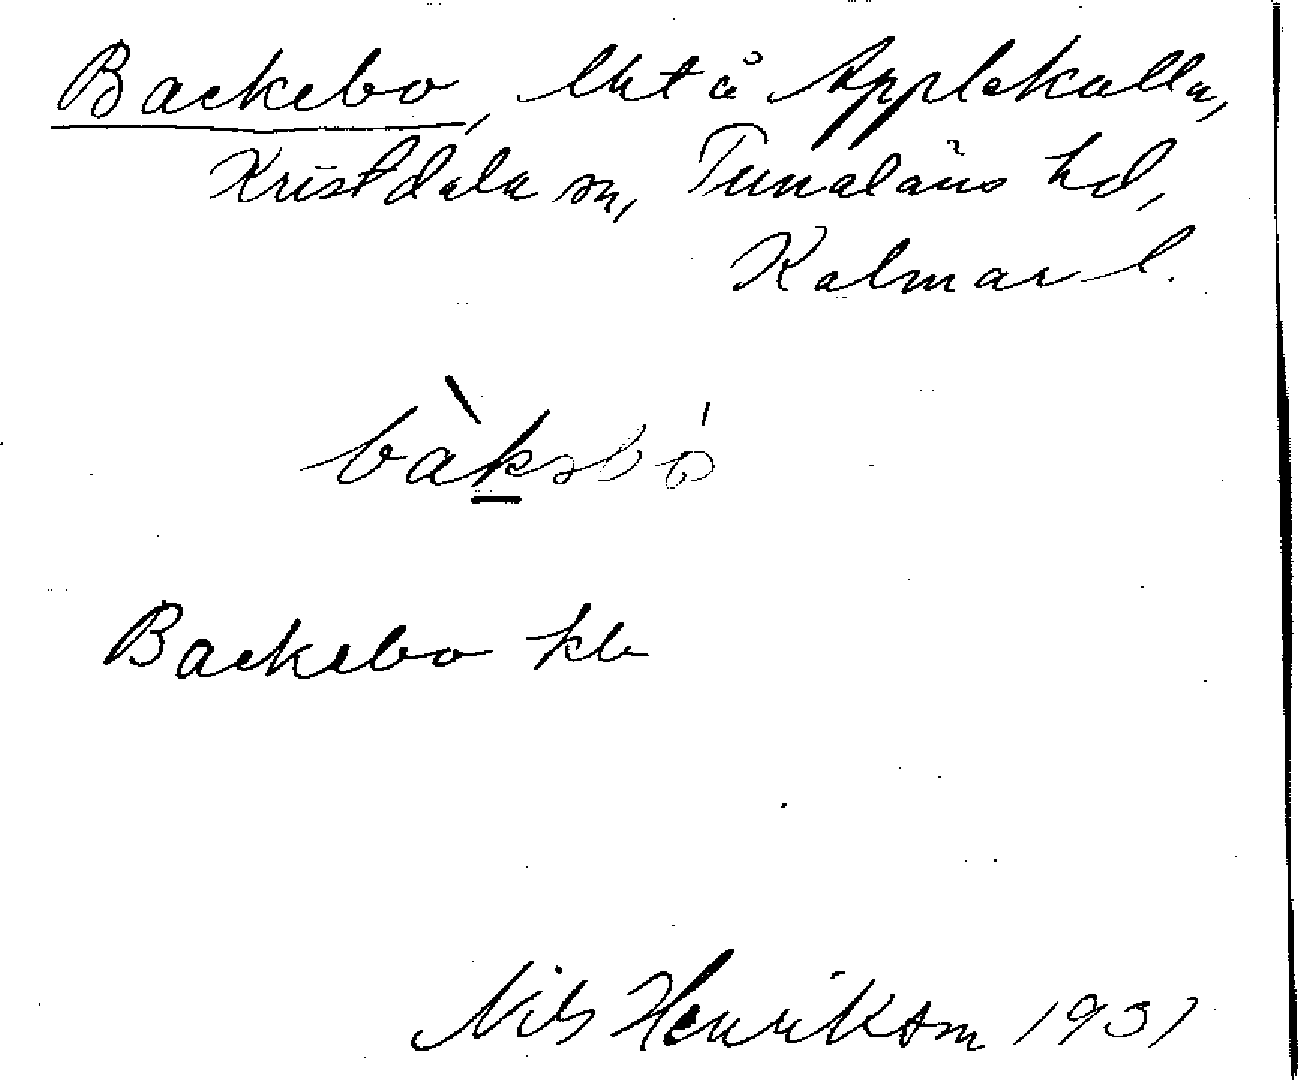 Backebo, lht å Applekulla,
Kristdala sn, Tunaläns hd,
Kalmar l.
bàkəbó
Backebo kb
Nils Henrikson 1931